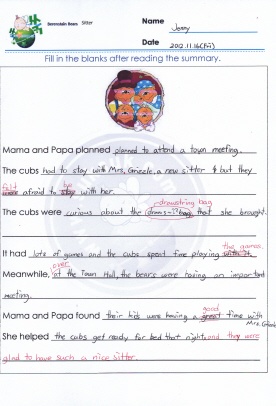 Berenstain Bears Sitter
Name Jenny
Date 2012.11.16(Fri)
Fill in the blanks after reading the summary.
Mama and Papa planned planned to attend a town meeting.
The cubs had to stay with Mrs. Grizzle, a new sitter & but they
felt afraid to be with her.
drawstring bag
The cubs were curious about the that she brought.
the games.
It had lots of games and the cubs spent time playing with it.
over
Meanwhile, at the Town Hall, the bears were having an important
meeting.
good
Mama and Papa found their kids were having a great time with
Mrs. Grizzle
She helped the cubs get ready for bed that night. and they were
glad to have such a nice sitter.